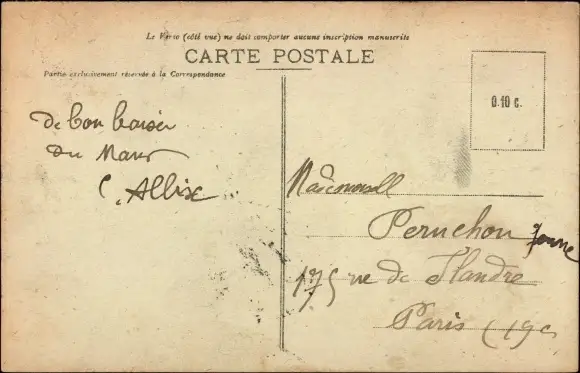 Le Verso (côté vue) ne doit comporter aucune inscription manuscrite
CARTE POSTALE
Partie exclusivement réservée à la Correspondance
0.10 c.
de bon baiser
du Mans
C. Allix
Peruchon Jeane
175 rue de Flandre
Paris (19e